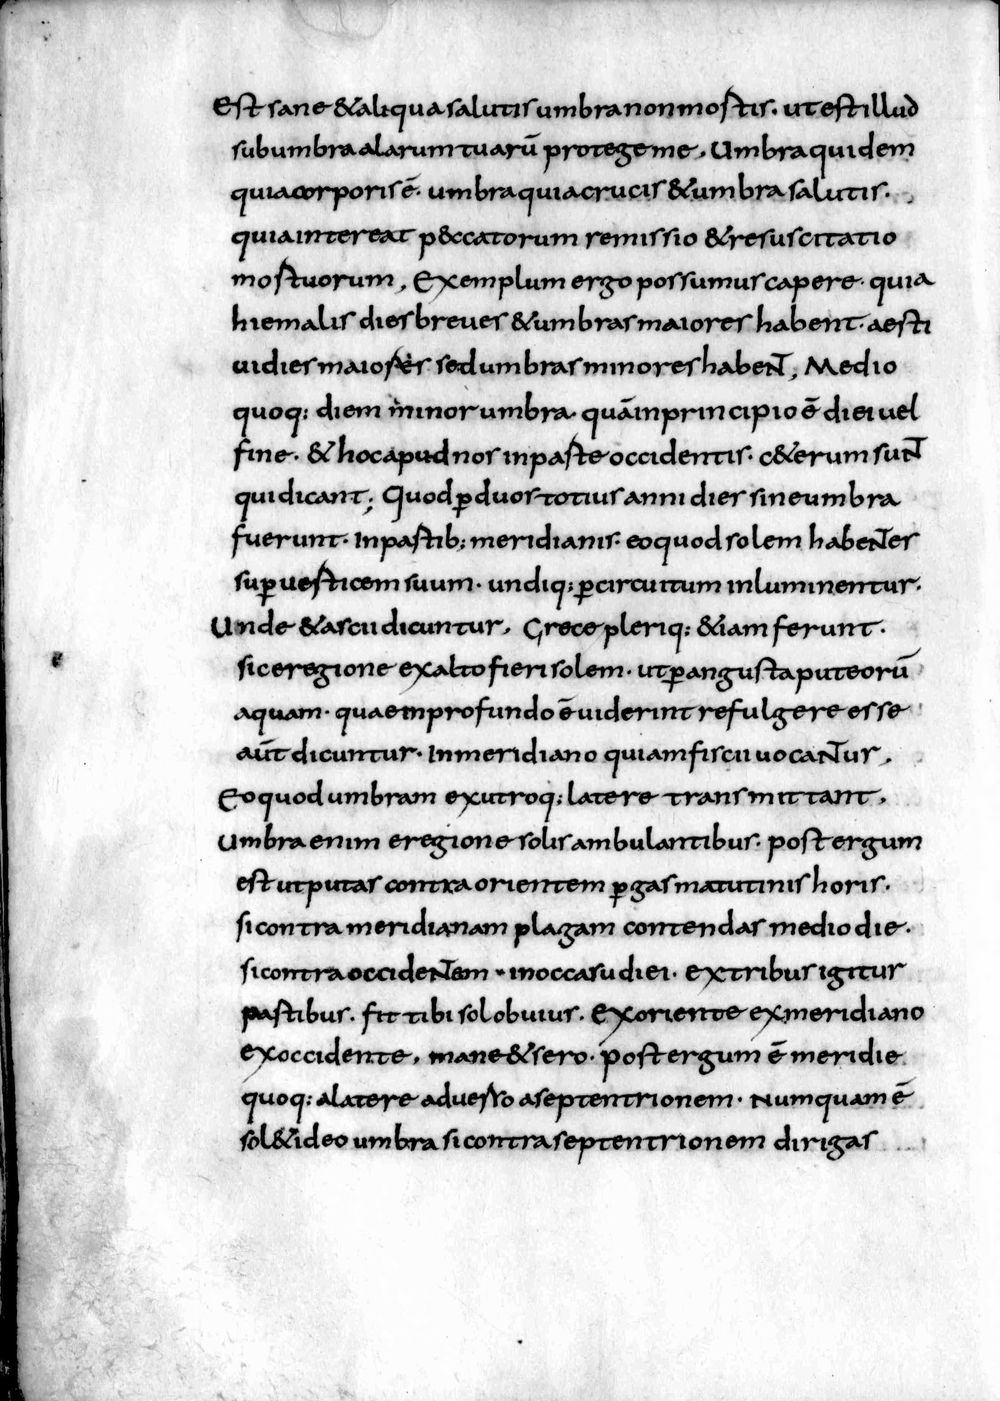 Est sane & aliqua salutis umbra non mortis. ut est illud
sub umbra alarum tuarū protege me, Umbra quidem
quia corporis ē. umbra quia crucis & umbra salutis.
quia intereat p&ccatorum remissio & resuscitatio
mortuorum, Exemplum ergo possumus capere. quia
hiemalis dies breues & umbras maiores habent. aesti
ui dies maiores sed umbras minores habent, Medio
quoq; diem minor umbra. quā in principio ē diei uel
fine. & hoc apud nos in parte occidentis. c&erum sunt
qui dicant; Quod ꝑ duos totius anni dies sine umbra
fuerunt. In partib; meridianis. eo quod solem habentes
suꝑ uerticem suum. undiq; ꝑ circuitum inluminentur.
Unde & ascii dicuntur, Grece pleriq; &iam ferunt.
sic e regione ex alto fieri solem. ut ꝑ angusta puteorū
aquam. quae in profundo ē uiderint refulgere esse
aūt dicuntur. In meridiano qui amfiscii uocantur,
Eo quod umbram ex utroq; latere transmittant,
Umbra enim e regione solis ambulantibus. post ergum
est ut putas contra orientem ꝑgas matutinis horis.
si contra meridianam plagam contendas medio die.
si contra occidentem. in occasu diei. ex tribus igitur
partibus. fit tibi sol obuius. Ex oriente ex meridiano
ex occidente, mane & sero. post ergum ē meridie
quoq; a latere aduerso a septentrionem. Numquam ē
sol & ideo umbra si contra septentrionem dirigas